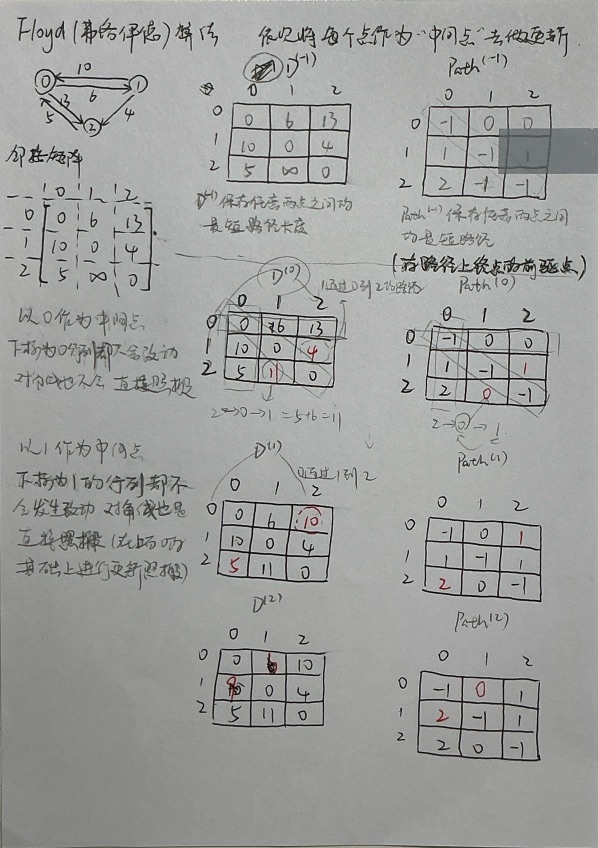 Floyd(弗洛伊德)算法 依次将每个点作为“中间点”去做更新.
10
0 6 1
13
5 4
2
邻接矩阵
0 1 2
0 0 6 13
1 10 0 4
2 5 ∞ 0
D(-1)
0 1 2
0 0 6 13
1 10 0 4
2 5 ∞ 0
D(-1)保存任意两点之间的
最短路径长度
Path(-1)
0 1 2
0 -1 0 0
1 1 -1 1
2 2 -1 -1
Path(-1)保存任意两点之间
的最短路径
(存路径上终点的前驱点)
以0作为中间点
下标为0行列都不会改动
对角线也不会 直接照搬
D(0)
1通过0到2的路径
0 1 2
0 0 6 13
1 10 0 4
2 5 11 0
2→0→1=5+6=11
Path(0)
0 1 2
0 -1 0 0
1 1 -1 1
2 2 0 -1
2→0→1
以1作为中间点
下标为1的行列都不
会发生改动 对角线也是
直接照搬(在上面的
基础上进行更新照搬)
D(1)
0通过1到2
0 1 2
0 0 6 10
1 10 0 4
2 5 11 0
Path(1)
0 1 2
0 -1 0 1
1 1 -1 1
2 2 0 -1
D(2)
0 1 2
0 0 6 10
1 9 0 4
2 5 11 0
Path(2)
0 1 2
0 -1 0 1
1 2 -1 1
2 2 0 -1